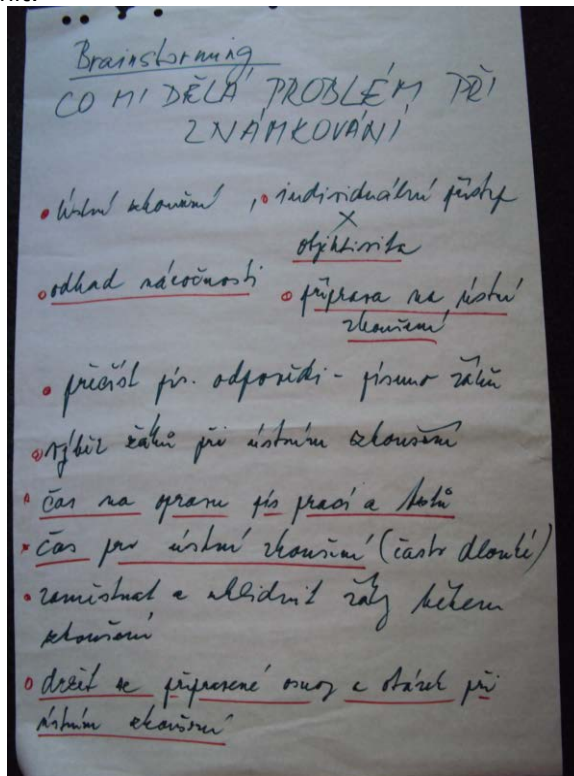 Brainstorming
CO MI DĚLÁ PROBLÉM PŘI
ZNÁMKOVÁNÍ
• ústní zkoušení , • individuální přístup
×
objektivita
• odhad náročnosti
• příprava na ústní
zkoušení
• přečíst pís. odpovědi - písmo žáků
• výběr žáků při ústním zkoušení
• čas na opravu pís prací a testů
• čas pro ústní zkoušení (často dlouhé)
• zaměstnat a uklidnit žáky během
zkoušení
• držet se připravené osnovy a otázek při
ústním zkoušení